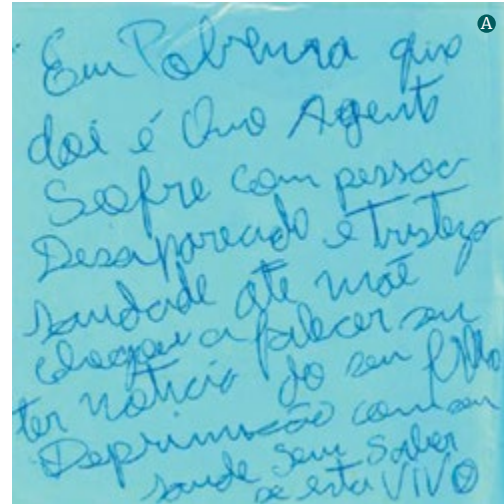 A
Em Pobrenza que
doi é Que Agento
Soofre com pessoa
Desaparecido e tristeza
saudade ate mãe
chegou a falecer sem
ter noticia do seu filho
Deprimição com sem
saude sem Saber
se esta VIVO